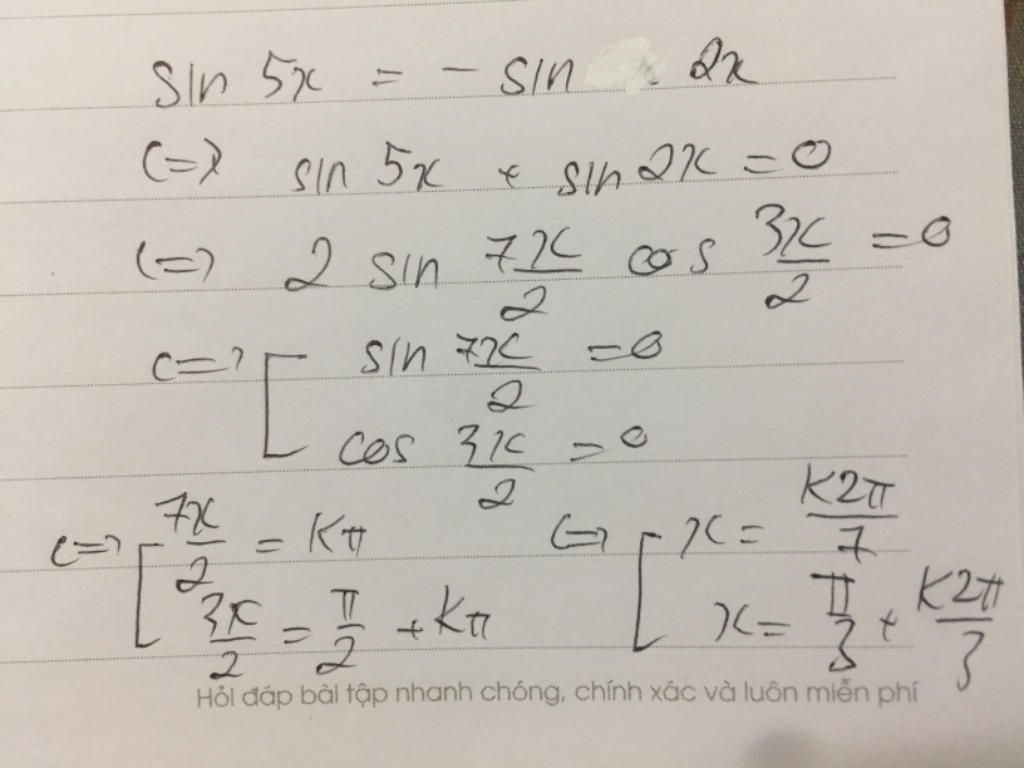 sin 5x = - sin 2x
(=) sin 5x + sin 2x = 0
(=) 2 sin 7x/2 cos 3x/2 = 0
(=) [ sin 7x/2 = 0
cos 3x/2 = 0
(=) [ 7x/2 = kπ (=) [ x = k2π/7
3x/2 = π/2 + kπ x = π/3 + k2π/3
Hỏi đáp bài tập nhanh chóng, chính xác và luôn miễn phí